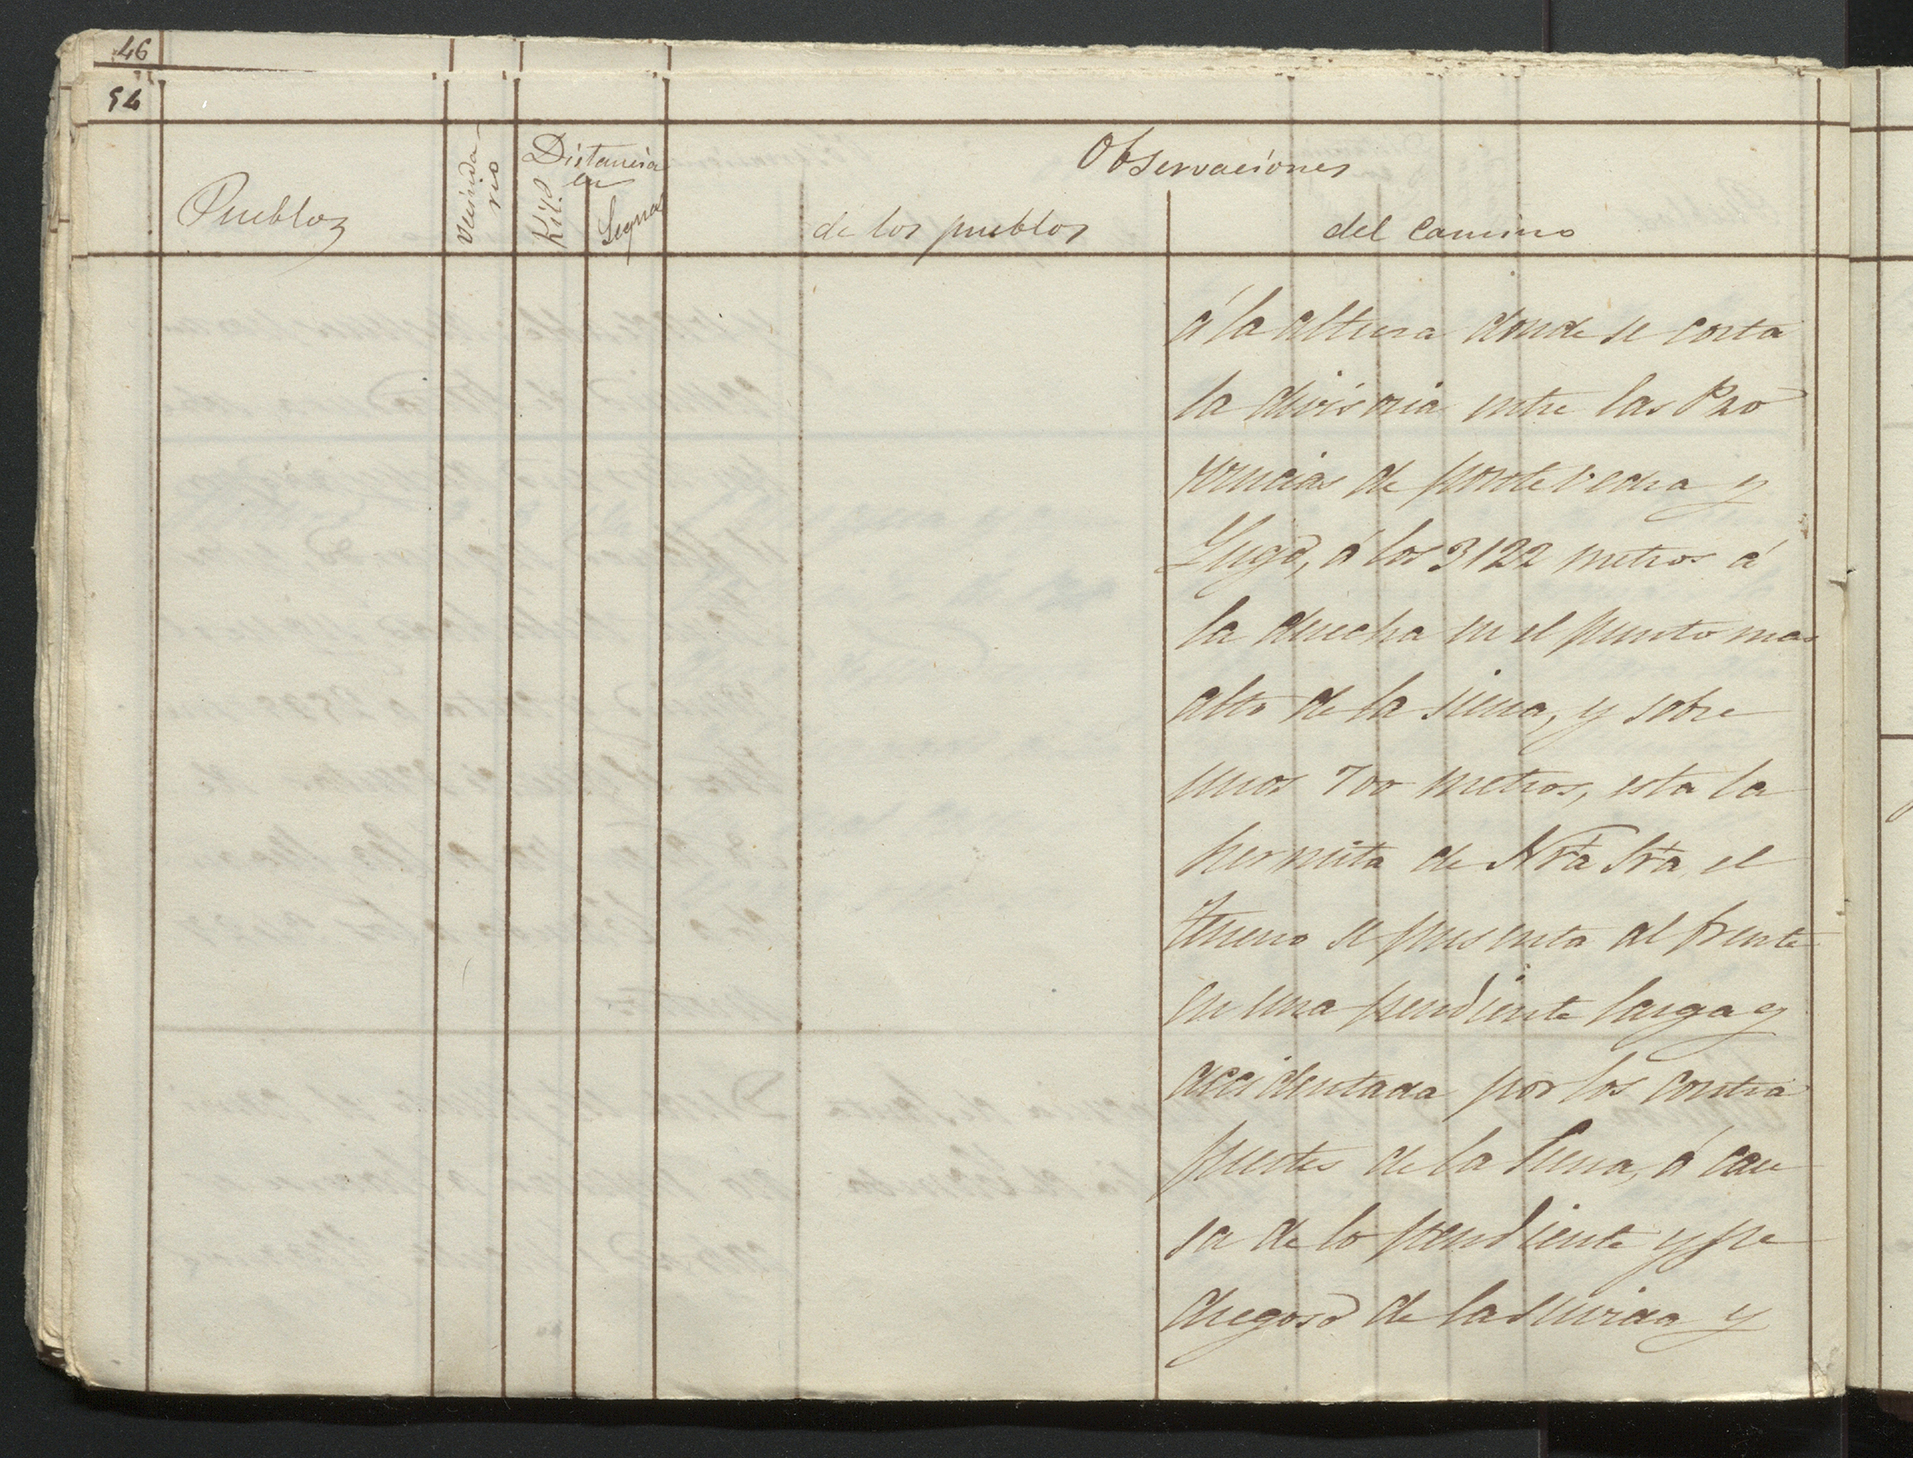 46
54
Pueblos
Vecinda-
rio
Distancia
en
Kil.s
Leguas
Observaciones
de los pueblos
del Camino
á la altura donde se corta
la divisoria entre las Pro
vincias de pontevedra y
Lugo, á los 3122 metros á
la derecha en el punto mas
alto de la sierra, y sobre
unos 700 metros, esta la
hermita de Nra Sra, el
terreno se presenta al frente
en una pendiente larga y
accidentada por los contra
fuertes de la Sierra, á cau
sa de lo pendiente y pe
dregoso de la subida y